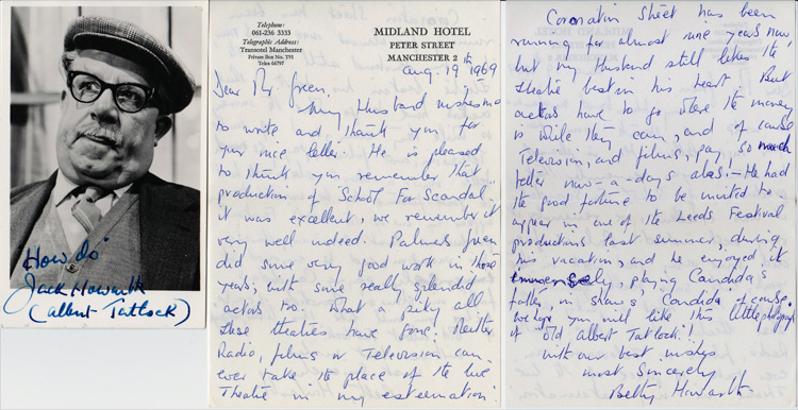 How do'
Jack Howarth
(Albert Tatlock)
Telephone:
061-236 3333
Telegraphic Address:
Transotel Manchester
Private Box No. TN
Telex 66797
MIDLAND HOTEL
PETER STREET
MANCHESTER 2
Aug. 19th 1969
Dear Mr Green.
My Husband wishes me
to write and thank you for
your nice letter. He is pleased
to think you remember that
production of "School For Scandal".
it was excellent, we remember it
very well indeed. Palmer Green
did some very good work in those
years, with some really splendid
actors too. What a pity all
these theatres have gone. Neither
Radio, films or Television can
ever take the place of the live
Theatre in my estermation.
Coronation Street has been
running for almost nine years now,
but my Husband still likes the
theatre best in his heart. But
actors have to go where the money
is while they can, and of cause
Television, and films, pay, so much
better now-a-days alas! - He had
the good fortune to be invited to
appear in one of the Leeds Festival
productions last summer, during
his vacation, and he enjoyed it
immensely, playing Candida's
father, in Shaw's Candida of course.
we hope you will like this little photograph
of "Old Albert Tatlock"!
with our best wishes
most Sincerely
Betty Howarth.